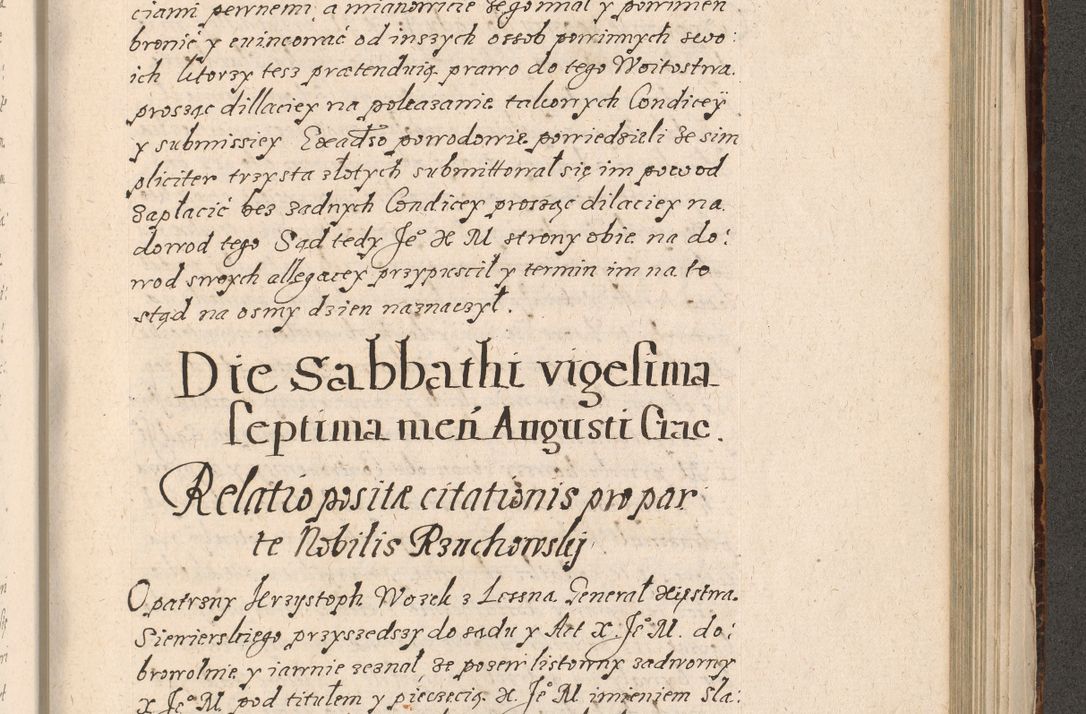 ciami pewnemi, a mianowicie że go miał y powinien
bronić y euincować od inszych ossob powinnych swo:
ich ktorzy tesz prætenduią prawo do tego Woitostwa.
prosząc dillaciey na pokazanie takowych Condiceÿ
y submissiey powodowie powiedzieli że sim
pliciter trzysta złotych submittował się im powod
zapłacić bes żadnych Condicey prosząc dilaciey na
dowod tego Sąd tedy Je° X M strony obie na do:
wod swoych allegacey przypuscił y termin im na to
stąd na osmy dzien naznaczył.
Die Sabbathi vigesima
septima meń Augusti Crac.
Relatio positæ citationis pro par
te Nobilis Rzuchowskj
Opatrzny Krzysztoph Wozek z Lessna General Xięstwa.
Siewierskiego przyszedszy do sądu y Act X. Je° M. do:
browolnie y iawnie zeznał że pozew listowny zadworny
X Je° M. pod titułem y pieczęcią X. Je° M imieniem Sła: